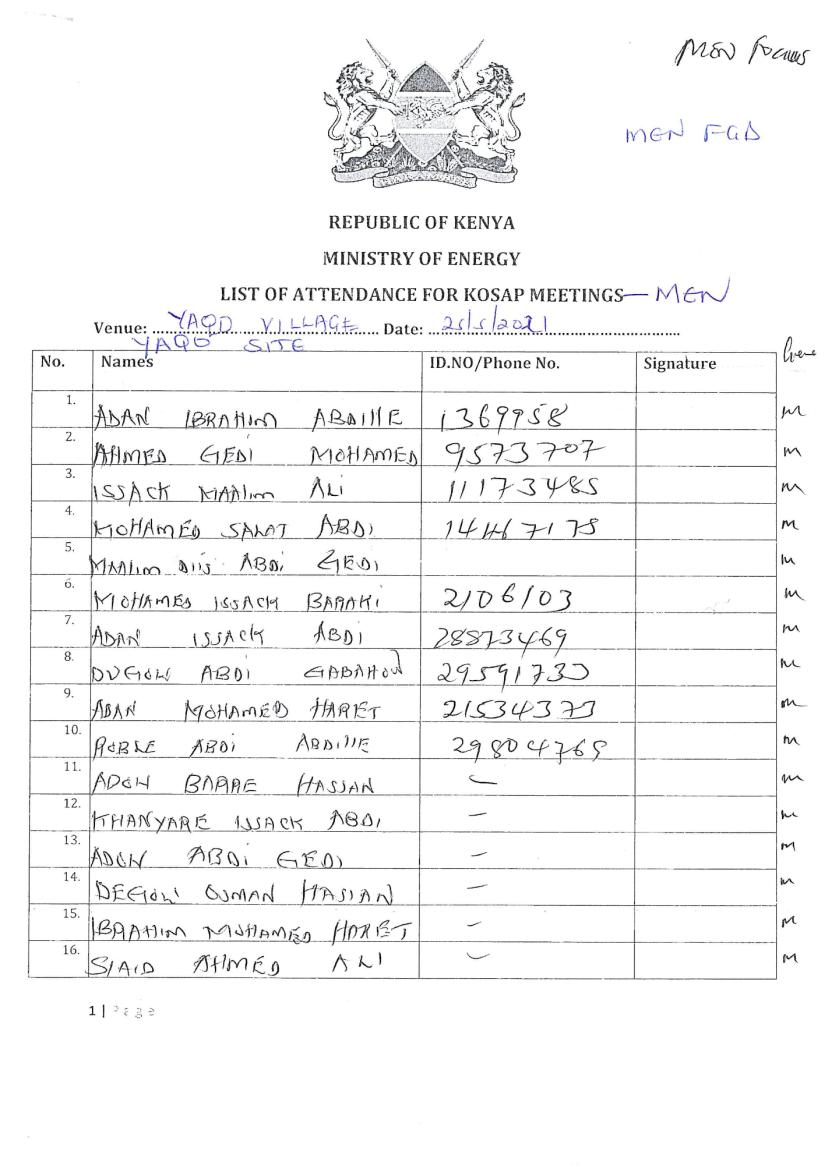 MEN Focus
MEN FGD
REPUBLIC OF KENYA
MINISTRY OF ENERGY
LIST OF ATTENDANCE FOR KOSAP MEETINGS — MEN
Venue: YAQD VILLAGE Date: 25/5/2021
YAQD SITE
No. Names ID.NO/Phone No. Signature
1. ADAN IBRAHIM ABDILLE 1369958 M
2. AHMED GEDI MOHAMED 9573707 M
3. ISSACK MAALIM ALI 11173485 M
4. MOHAMED SALAT ABDI M
5. MAALIM DIIS ABDI GEDI M
6. MOHAMED ISSACK BARAKI 2106103 M
7. ADAN ISSACK ABDI 28873469 M
8. DUGOW ABDI GABAHOW M
9. ADAN MOHAMED HARET 21534373 M
10. ROBLE ABDI ABDILLE 29804765 M
11. ADOW BARRE HASSAN — M
12. KHANYARE ISSACK ABDI — M
13. ADOW ABDI GEDI — M
14. DEGOW OSMAN HASSAN — M
15. IBRAHIM MOHAMED HARET — M
16. SIAID AHMED ALI — M
1 | Page